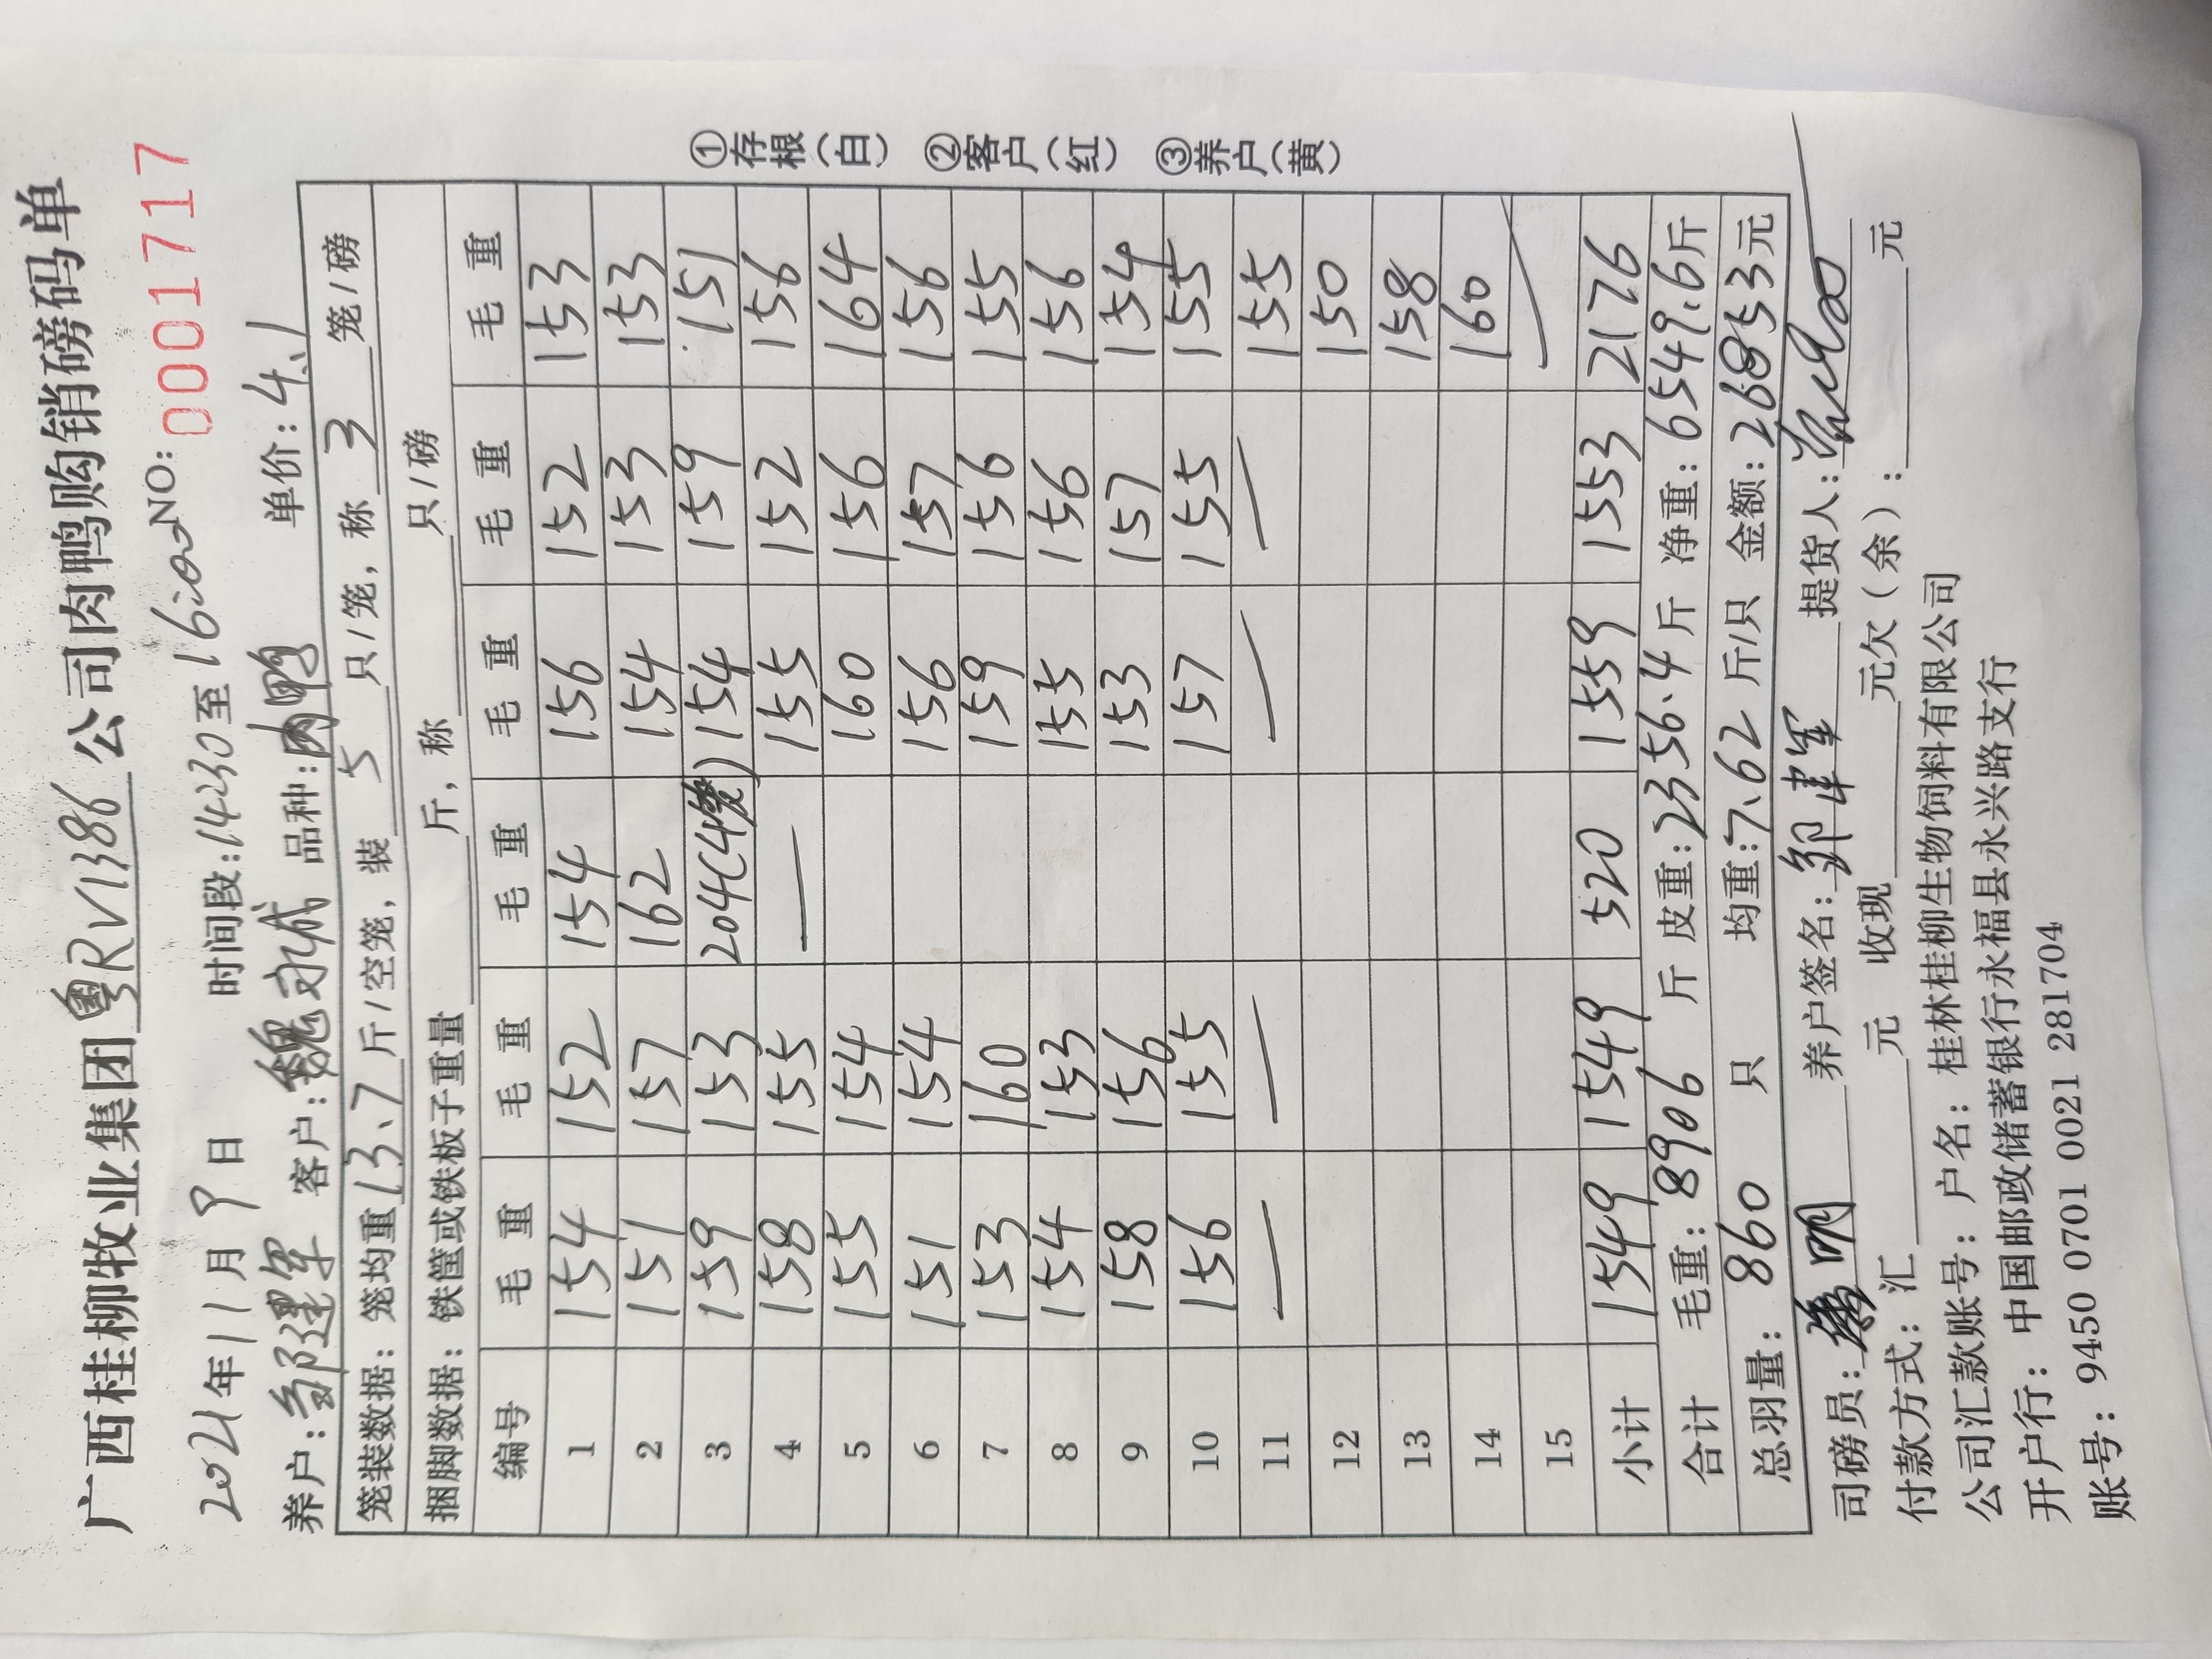 广西桂柳牧业集团粤RV1386公司肉鸭购销磅码单
2021年11月9日 时间段:14:30至16:00 NO: 0001717
养户:邹建军 客户:魏永城 品种:肉鸭 单价:4.1
笼装数据:笼均重13.7斤/空笼,装5只/笼,称3笼/磅
捆脚数据:铁筐或铁板子重量 斤,称 只/磅
编号 毛重 毛重 毛重 毛重 毛重 毛重
1 154 152 154 156 152 153
2 151 157 162 154 153 153
3 159 153 204(4笼) 154 159 151
4 158 155 — 155 152 156
5 155 154 160 156 164
6 151 154 156 157 156
7 153 160 159 156 155
8 154 153 155 156 156
9 158 156 153 157 154
10 156 155 157 155 155
11 — — — — 155
12 150
13 158
14 160
15 —
小计 1549 1549 520 1559 1553 2176
合计 毛重:8906斤 皮重:2356.4斤 净重:6549.6斤
总羽量:860只 均重:7.62斤/只 金额:26853元
司磅员: 明 养户签名:邹建军 提货人:
付款方式:汇 元 收现 元欠(余): 元
公司汇款账号:户名:桂林桂柳生物饲料有限公司
开户行:中国邮政储蓄银行永福县永兴路支行
账号:9450 0701 0021 281704
①存根(白) ②客户(红) ③养户(黄)